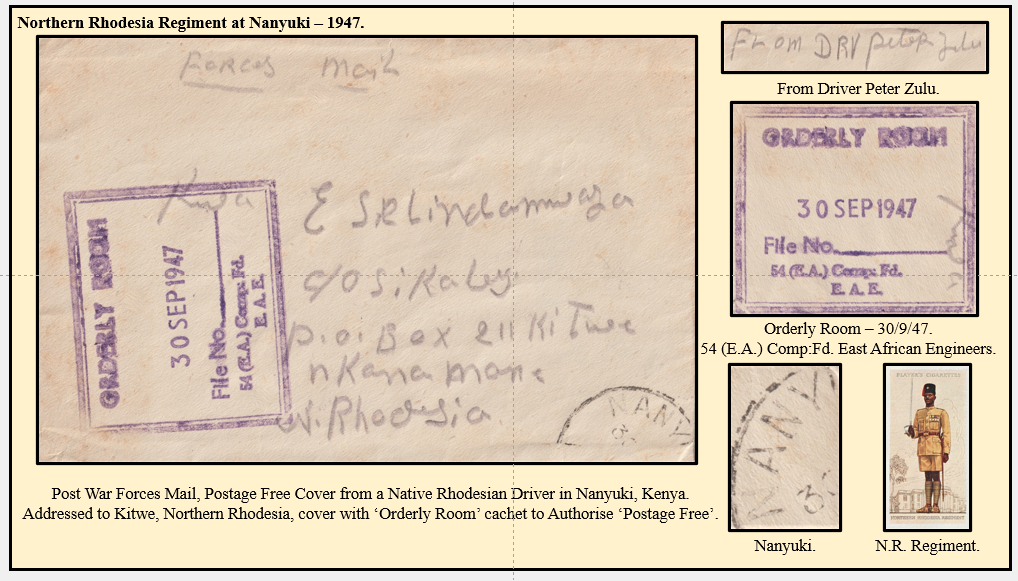 Northern Rhodesia Regiment at Nanyuki – 1947.
Forces Mail
Kwa E S
c/o Sikaley
P.O. Box 211 Kitwe
nKana
N. Rhodesia
ORDERLY ROOM
30 SEP 1947
File No.
54 (E.A.) Comp: Fd.
E. A. E.
NANY
3
FROM DRV Peter Zulu
From Driver Peter Zulu.
ORDERLY ROOM
30 SEP 1947
File No.
54 (E.A.) Comp: Fd.
E. A. E.
Orderly Room – 30/9/47.
54 (E.A.) Comp:Fd. East African Engineers.
NANY
3
Nanyuki.
PLAYER'S CIGARETTES
NORTHERN RHODESIA REGIMENT
N.R. Regiment.
Post War Forces Mail, Postage Free Cover from a Native Rhodesian Driver in Nanyuki, Kenya.
Addressed to Kitwe, Northern Rhodesia, cover with ‘Orderly Room’ cachet to Authorise ‘Postage Free’.